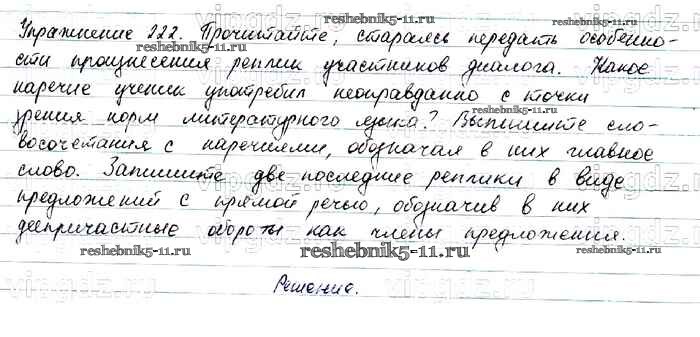 Упражнение 222. Прочитайте, стараясь передать особенно-
сти произнесения реплик участников диалога. Какое
наречие ученик употребил неоправданно с точки
зрения норм литературного языка? Выпишите сло-
восочетания с наречиями, обозначая в них главное
слово. Запишите две последние реплики в виде
предложений с прямой речью, обозначив в них
деепричастные обороты как члены предложения.
Решение.
vipgdz.ru
reshebnik5-11.ru
reshebnik5-11.ru
reshebnik5-11.ru
reshebnik5-11.ru
reshebnik5-11.ru